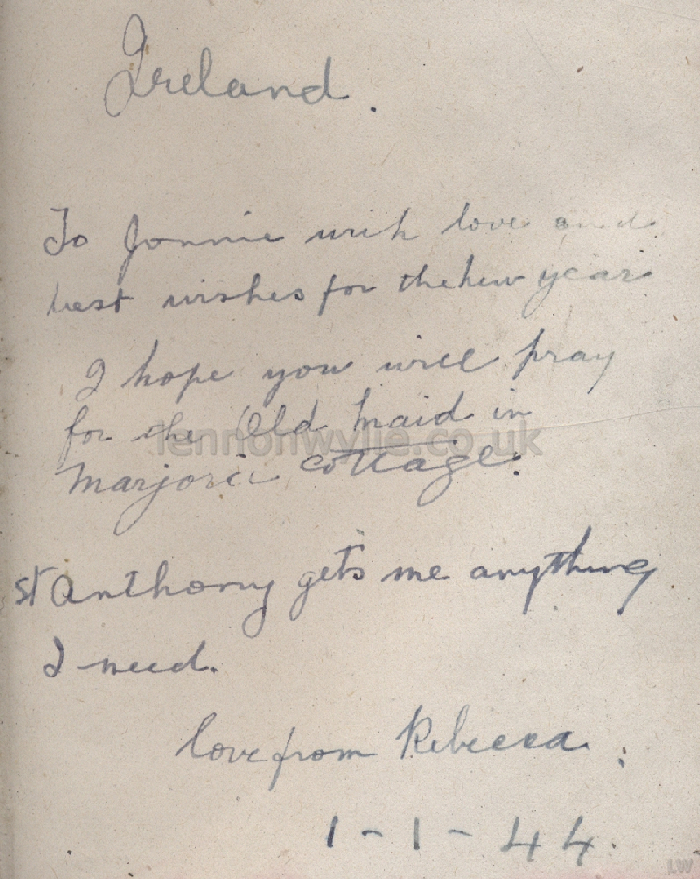 Ireland.
To Jonnie with love and
best wishes for the new year
I hope you will pray
for the Old Maid in
Marjorie Cottage.
St Anthony gets me anything
I need.
love from Rebecca.
1-1-44.
lennonwylie.co.uk
LW